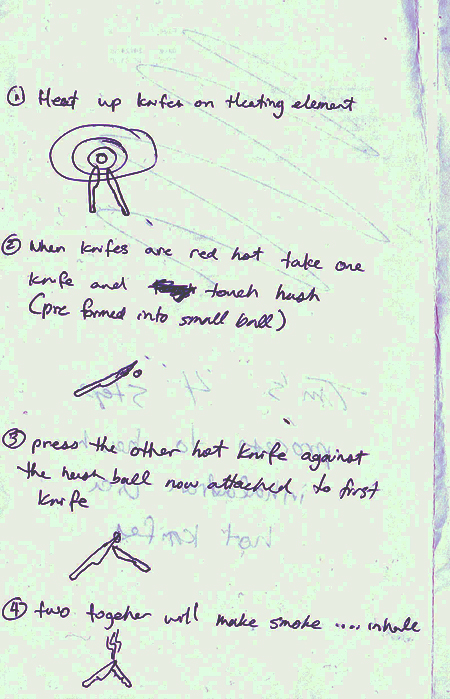 ① Heat up knifes on Heating element
② When knifes are red hot take one
knife and touch hash
(pre formed into small ball)
③ press the other hot knife against
the hash ball now attached to first
knife
④ two together will make smoke .... inhale